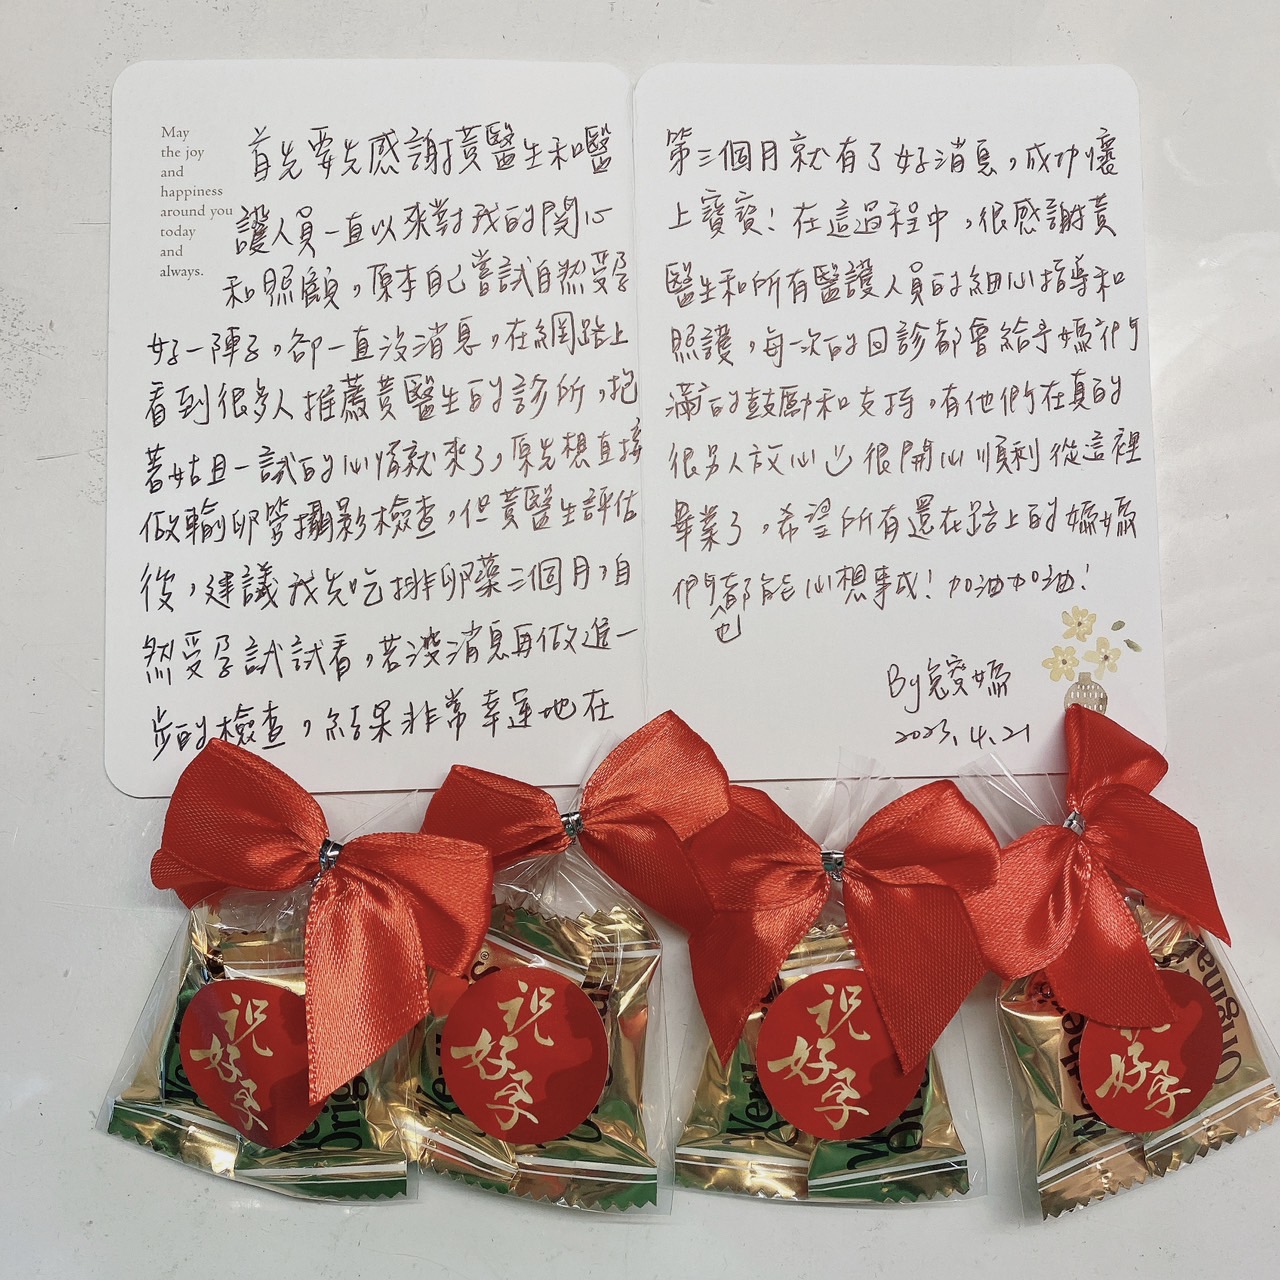 May
the joy
and
happiness
around you
today
and
always.
首先要先感謝黃醫生和醫
護人員一直以來對我的關心
和照顧，原本自己嘗試自然受孕
好一陣子，卻一直沒消息，在網路上
看到很多人推薦黃醫生的診所，抱
著姑且一試的心情就來了，原先想直接
做輸卵管攝影檢查，但黃醫生評估
後，建議我先吃排卵藥三個月，自
然受孕試試看，若沒消息再做進一
步的檢查，結果非常幸運地在
第三個月就有了好消息，成功懷
上寶寶！在這過程中，很感謝黃
醫生和所有醫護人員的細心指導和
照護，每一次的回診都會給予媽咪們
滿的鼓勵和支持，有他們在真的
很另人放心 很開心順利從這裡
畢業了，希望所有還在路上的媽媽
們都能心想事成！加油加油！
也
By 兔寶媽
2023.4.21
祝
好孕
祝
好孕
祝
好孕
好孕
Werther's
Original